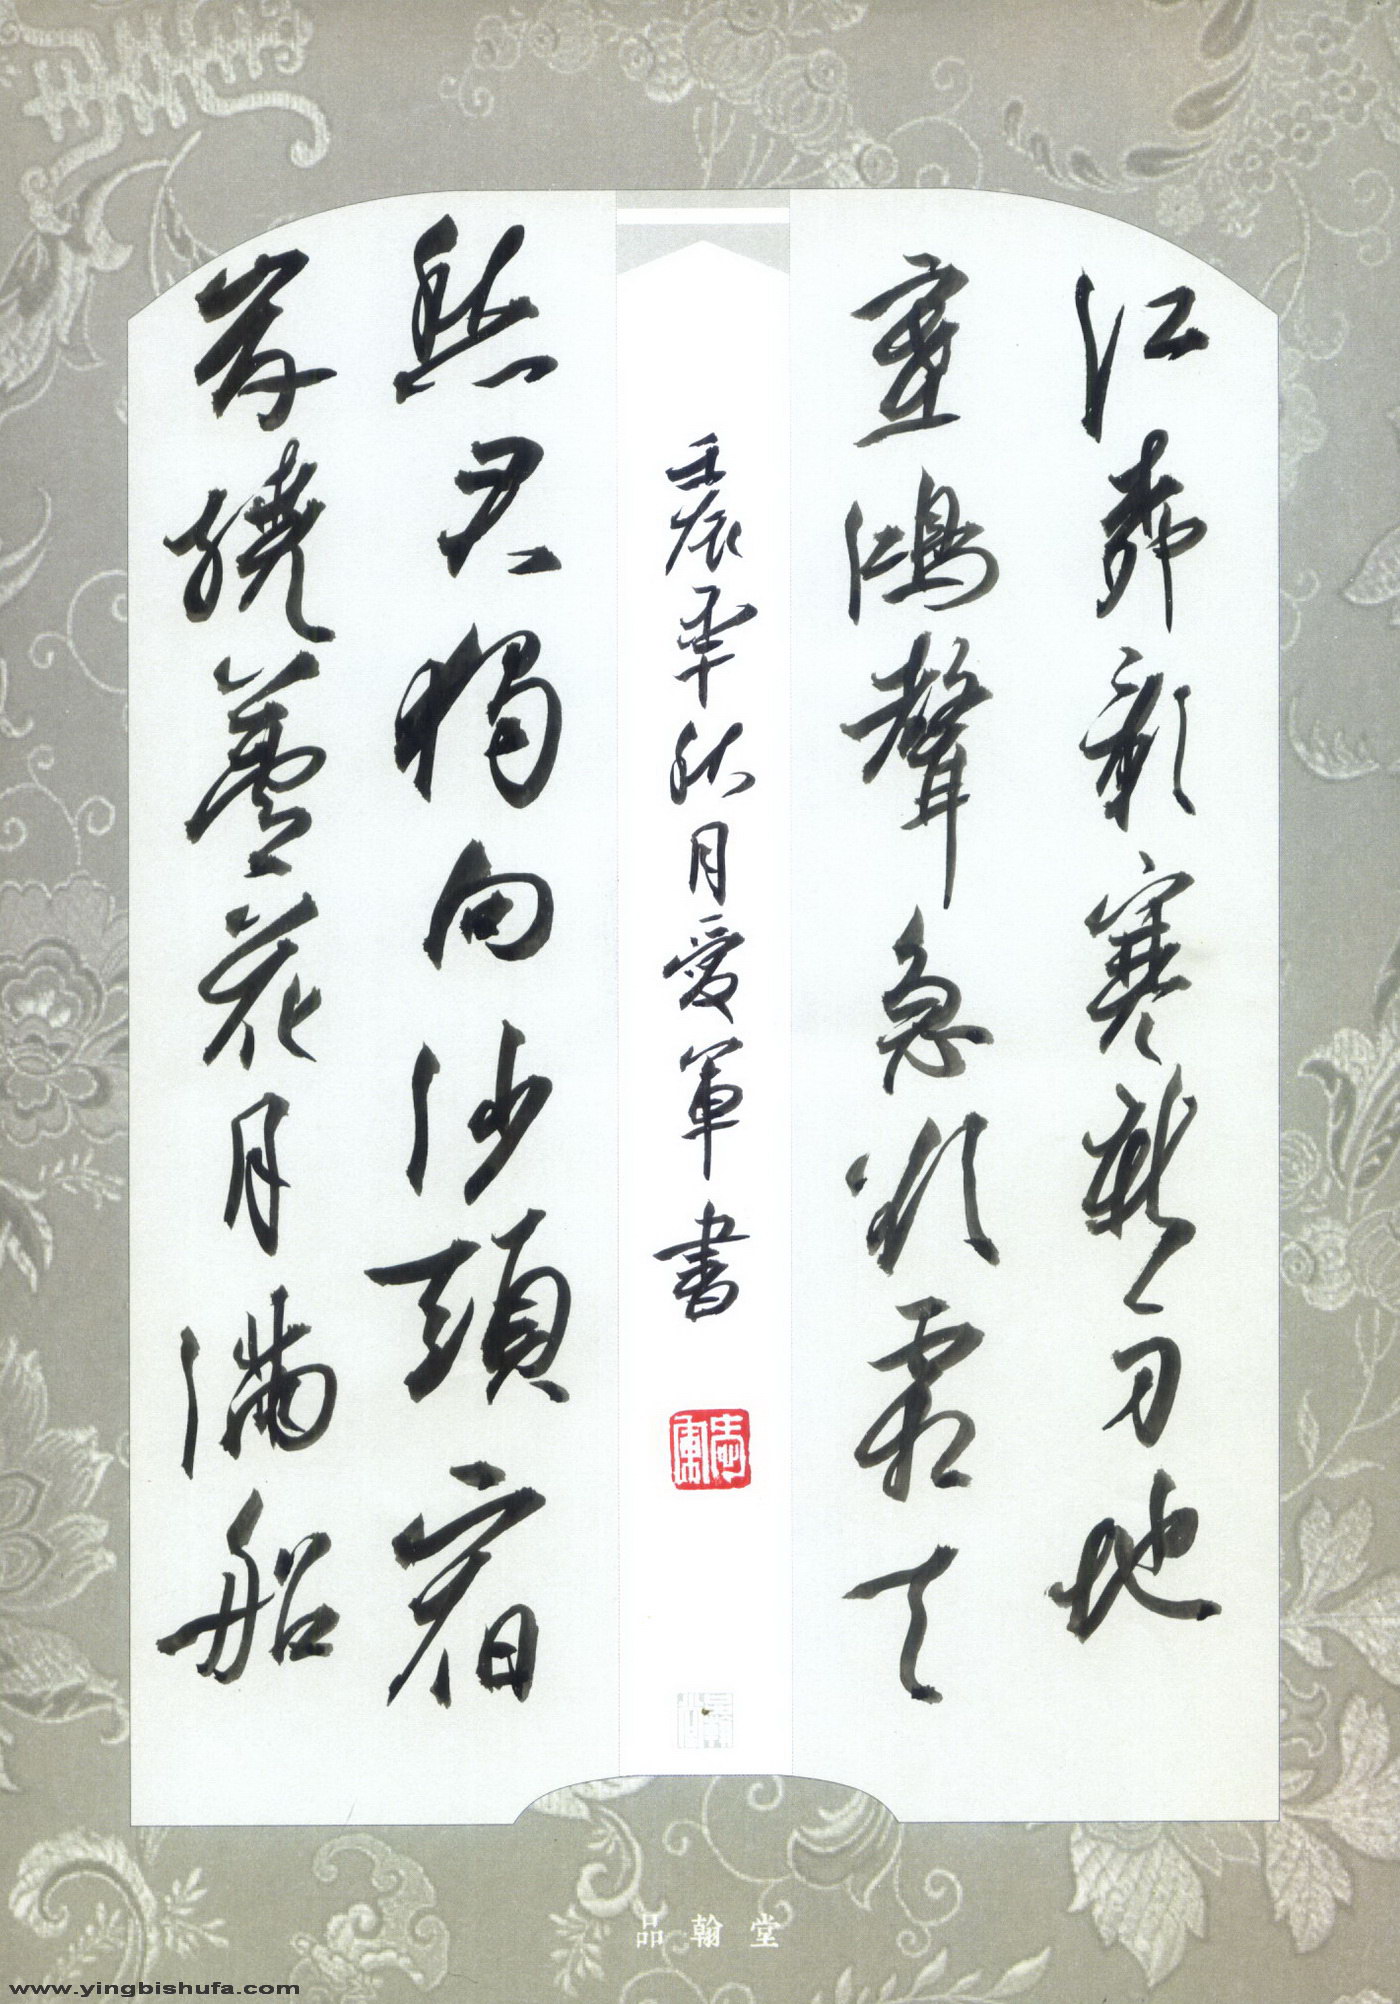 江柳影寒新雨地
塞鴻聲急欲霜天
壬辰年秋月愛軍書
愁君獨向沙頭宿
岸繞蘆花月滿船
品翰堂
www.yingbishufa.com